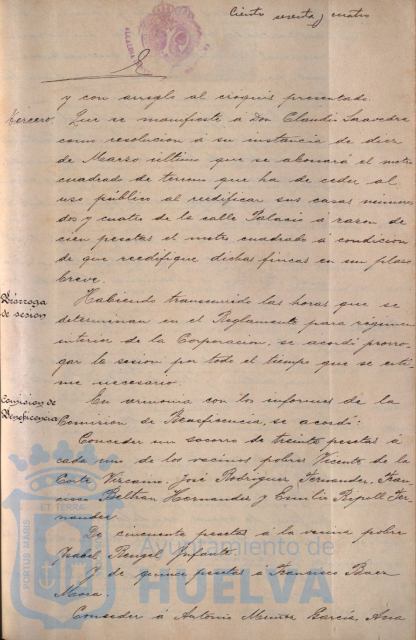 Ciento sesenta y cuatro
y con arreglo al croquis presentado.
Tercero. Que se manifieste á Don Claudio Saavedra
como resolucion á su instancia de diez
de Marzo último que se abonará el metro
cuadrado de terreno que ha de ceder al
uso público al reedificar sus casas números
dos y cuatro de la calle Palacio á razon de
cien pesetas el metro cuadrado á condicion
de que reedifique dichas fincas en un plazo
breve.
Prórroga de sesion
Habiendo transcurrido las horas que se
determinan en el Reglamento para régimen
interior de la Corporacion, se acordó prorro-
gar la sesion por todo el tiempo que se esti-
me necesario.
Comision de Beneficencia
En armonia con los informes de la
Comision de Beneficencia, se acordó:
Conceder un socorro de treinta pesetas á
cada uno de los vecinos pobres Vicente de la
Corte Vizcaino, José Rodriguez Fernandez, Fran-
cisco Beltran Hernandez y Emilio Ripoll Fer-
nandez.
De cincuenta pesetas á la vecina pobre
Isabel Rengel Infante.
Y de quince pesetas á Francisco Baez
Mora.
Conceder á Antonio García, Ana
PORTUS MARIS ET TERRAE
Ayuntamiento de
HUELVA